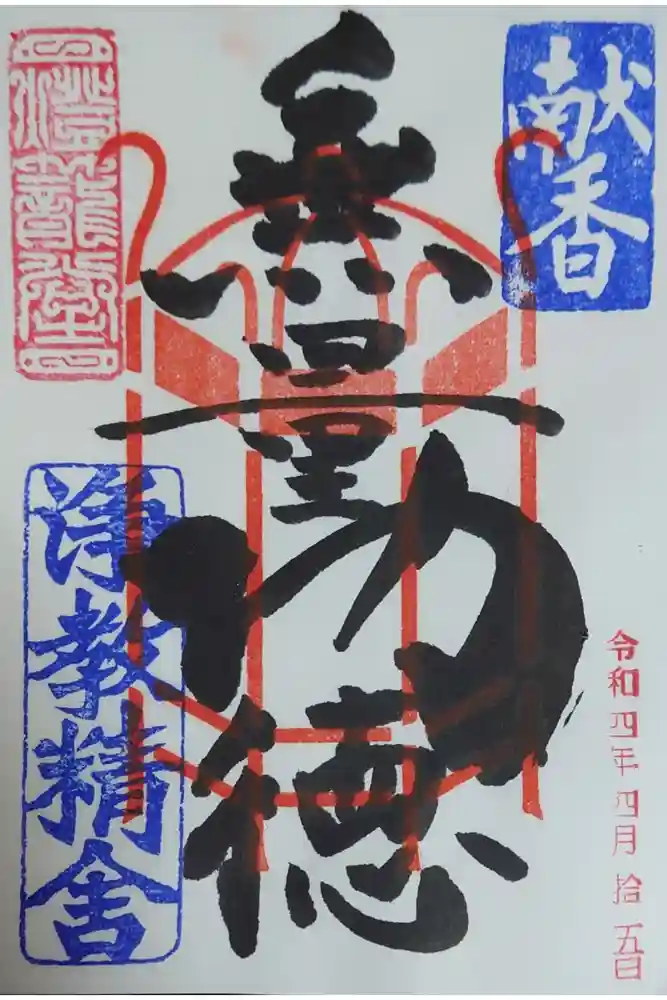 献香
無量功徳
令和四年四月拾五日
浄教精舎